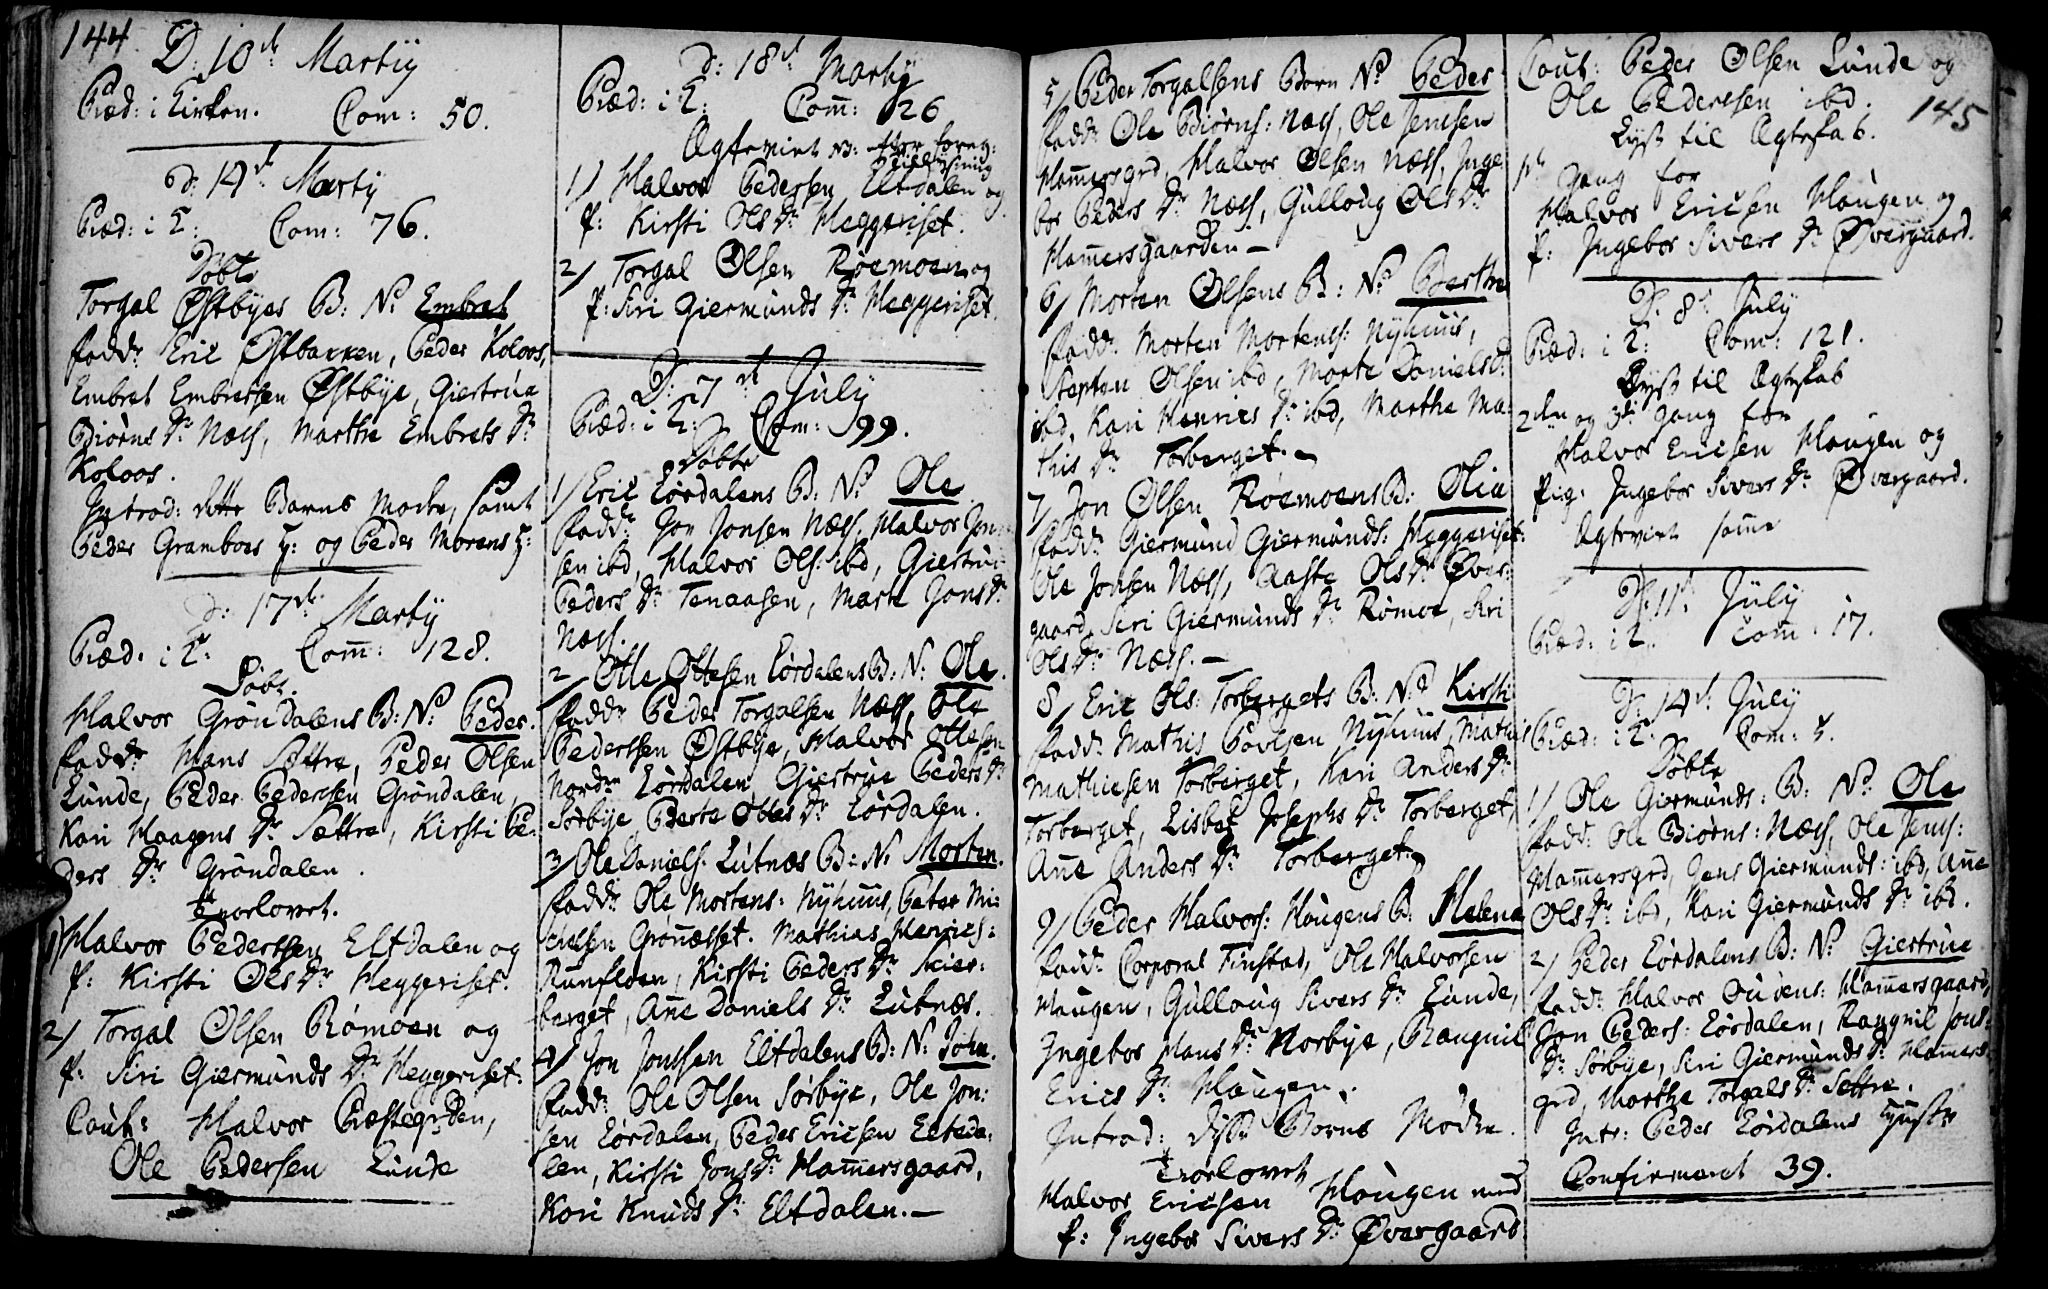 144.
D: 10de Martij
Præd: i Kirken. Com: 50.
D: 14de Martij
Præd: i K: Com: 76.
Døbte
Torgal Østbyes B: No Embret
fadd: Eric Østbakken, Peder Koloos,
Embret Embretsen Østbye, Giertrue
Biörns Dr Næss, Marthe Embrets Dr
Koloos.
Introd: dette Barns Moder, samt
Peder Gramboes H: og Peder Morens H:
D: 17de Martij
Præd: i K: Com: 128.
Døbt.
Halvor Gröndalens B: No: Peder.
fadd: Hans Sættre, Peder Olsen
Lunde, Peder Pedersen Gröndalen,
Kari Haagens Dr Sættre, Kirsti Pe-
ders Dr Gröndalen.
Trorlovet.
1) Halvor Pederssen Eltdalen og
P: Kirsti Ols Dr Heggeriset.
2) Torgal Olsen Römoen og
P: Siri Giermunds Dr Heggeriset.
Caut: Halvor Præstegrden,
Ole Pedersen Lunde
D: 18de Martij
Præd: i K: Com: 26
Ægteviet NB: efter foreg:
Tillysning
1) Halvor Pederssen Eltdalen og
P: Kirsti Ols Dr Heggeriset.
2) Torgal Olsen Röemoen og
P: Siri Giermunds Dr Heggeriset.
D: 7de July
Præd: i K: Com: 99.
Døbte
1) Eric Lördalens B: No Ole.
fadd: Jon Jonsen Næss, Halvor Jon-
sen ibd, Halvor Ols: ibd, Giertru
Peders Dr Tenaasen, Marte Jons Dr
Næss.
2) Otte Ottesen Lördalens B: No: Ole.
fadd: Peder Torgalsen Næss, Ole
Pederssen Østbye, Halvor Ottesen
Nordre Lördalen, Giertrue Peders Dr
Sörbye Berte Ottes Dr Lördalen.
3) Ole Daniels: Lutnæs B: No Morten.
fadd: Ole Mortens: Nyhuus, Peter Mi-
chelsen Gronæsset. Mathias Henrics:
Runfloen, Kirsti Peders Dr Skier-
berget, Anne Daniels Dr Lutnæs.
4) Jon Jonssen Eltdalens B: No: John.
fadd: Ole Olsen Sörbye, Ole Jon:
sen Lördalen, Peder Ericsen Eltda-
len, Kirsti Jons Dr Hammersgaard,
Kari Knuds Dr Eltdalen.—
5) Peder Torgalsens Barn No Peder
fadd: Ole Biörns: Næss, Ole Jenssen
Hammersgrd, Halvor Olsen Næss, Inge-
bor Peders Dr Næss, Gulloug Ols Dr
Hammersgaarden—
6) Morten Olsens B: No Berthe
fadd: Morten Mortens: Nyhuus,
Steffen Olsen ibd, Marte Daniels Dr
ibd, Kari Henrics Dr ibd, Marthe Ma-
this Dr Torberget.—
7) Jon Olsen Röemoens B: Olia
fadd: Giermund Giermunds: Heggeriset.
Ole Jonsen Næss, Aaste Ols Dr Över-
gaard, Siri Giermunds Dr Römoe, Siri
Ols Dr Næss.—
8) Eric Ols: Torbergets B: No Kirsti
fadd: Mathis Povlsen Nyhuus, Mathis
Mathiesen Torberget, Kari Anders Dr
Torberget, Lisbet Josephs Dr Torberget,
Anne Anders Dr Torberget.
9) Peder Halvors: Haugens B: Helena
fadd: Corporal Finstad, Ole Halvorsen
Haugen, Gulloug Sivers Dr Lunde,
Ingebor Hans Dr Norbye, Raugnil
Erics Dr Haugen.
Introd: disse Börns Mödre.
Trorlovet
Halvor Ericsen Haugen med
P: Ingebor Sivers Dr Øvergaard
Caut: Peder Olsen Lunde og
Ole Pederssen ibd.
145
Lyst til Ægteskab.
1te Gang for
Halvor Ericsen Haugen og
P: Ingebor Sivers Dr Øvergaard.
D: 8de July
Præd: i K: Com: 121.
Lyst til Ægteskab
2den og 3di Gang for
Halvor Ericsen Haugen og
Pig: Ingebor Sivers Dr Øvergaard.
Ægteviet samme
D: 11te July
Præd: i K. Com: 17.
D: 14de July
Præd: i K: Com: 4.
Døbte
1) Ole Giermunds: B: No: Ole
fadd: Ole Biörns: Næss, Ole Jens:
Hammersgrd, Jens Giermunds: ibd, Anne
Ols Dr ibd, Kari Giermunds Dr ibd.
2) Peder Lördalens B: No Giertrue
fadd: Halvor Oudens: Hammersgaard,
Jon Peders: Lördalen, Raugnil Jons-
Dr Sörbye, Siri Giermunds Dr Hammers-
grd, Marthe Torgals Dr Settre.
Intr: Peder Lördalens Hustr
Confirmeret 39.